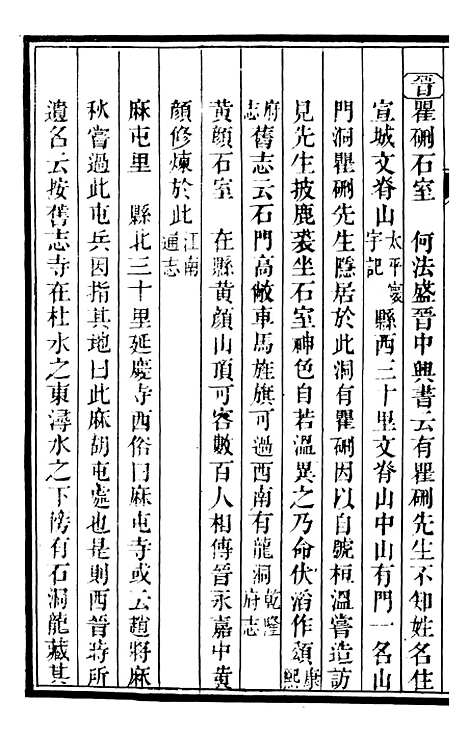 晉瞿硎石室　何法盛晉中興書云有瞿硎先生不知姓名住
宣城文脊山太平寰宇記縣西三十里文脊山中山有門一名山
門洞瞿硎先生隱居於此洞有瞿硎因以自號桓溫嘗造訪
見先生披鹿裘坐石室神色自若溫異之乃命伏滔作頌康熙
府志舊志云石門高敞車馬旌旗可過西南有龍洞乾隆府志
黃顏石室　在縣黃顏山頂可容數百人相傳晉永嘉中黃
顏修煉於此江南通志
麻屯里　縣北三十里延慶寺西俗曰麻屯寺或云趙將麻
秋嘗過此屯兵因指其地曰此麻胡屯處也是則西晉時所
遺名云按舊志寺在杜水之東潯水之下傍有石洞龍藏其